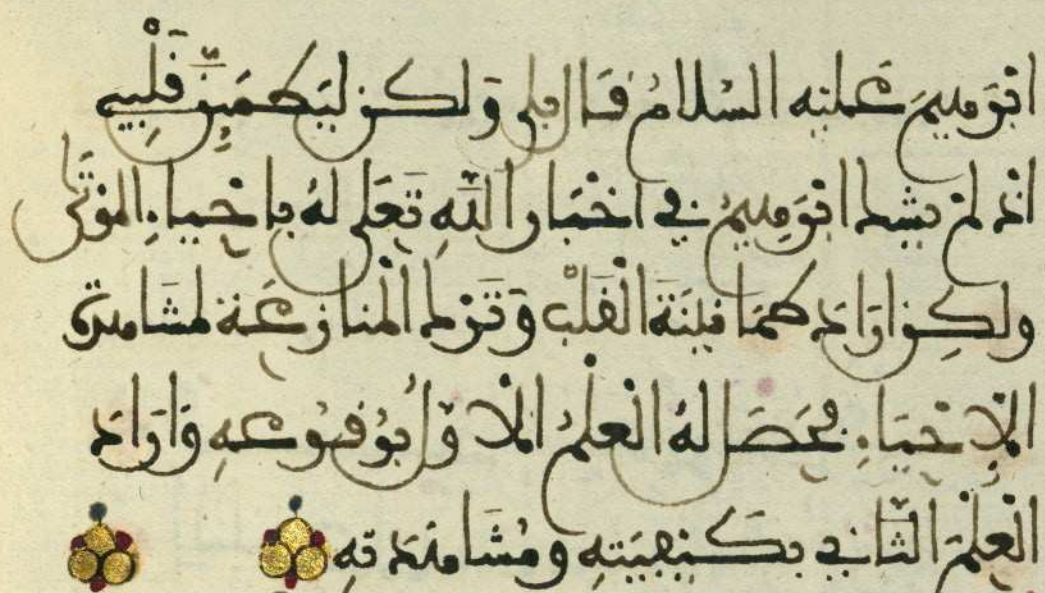 ابرهيم عليه السلام قال بلى ولكن ليطمئن قلبي
اذ لم يشك ابرهيم في اخبار الله تعلى له باحياء الموتى
ولكن اراد طمانينة القلب وترك المنازعة لمشاهدة
الاحياء فحصل له العلم الاول بوقوعه واراد
العلم الثاني بكيفيته ومشاهدته